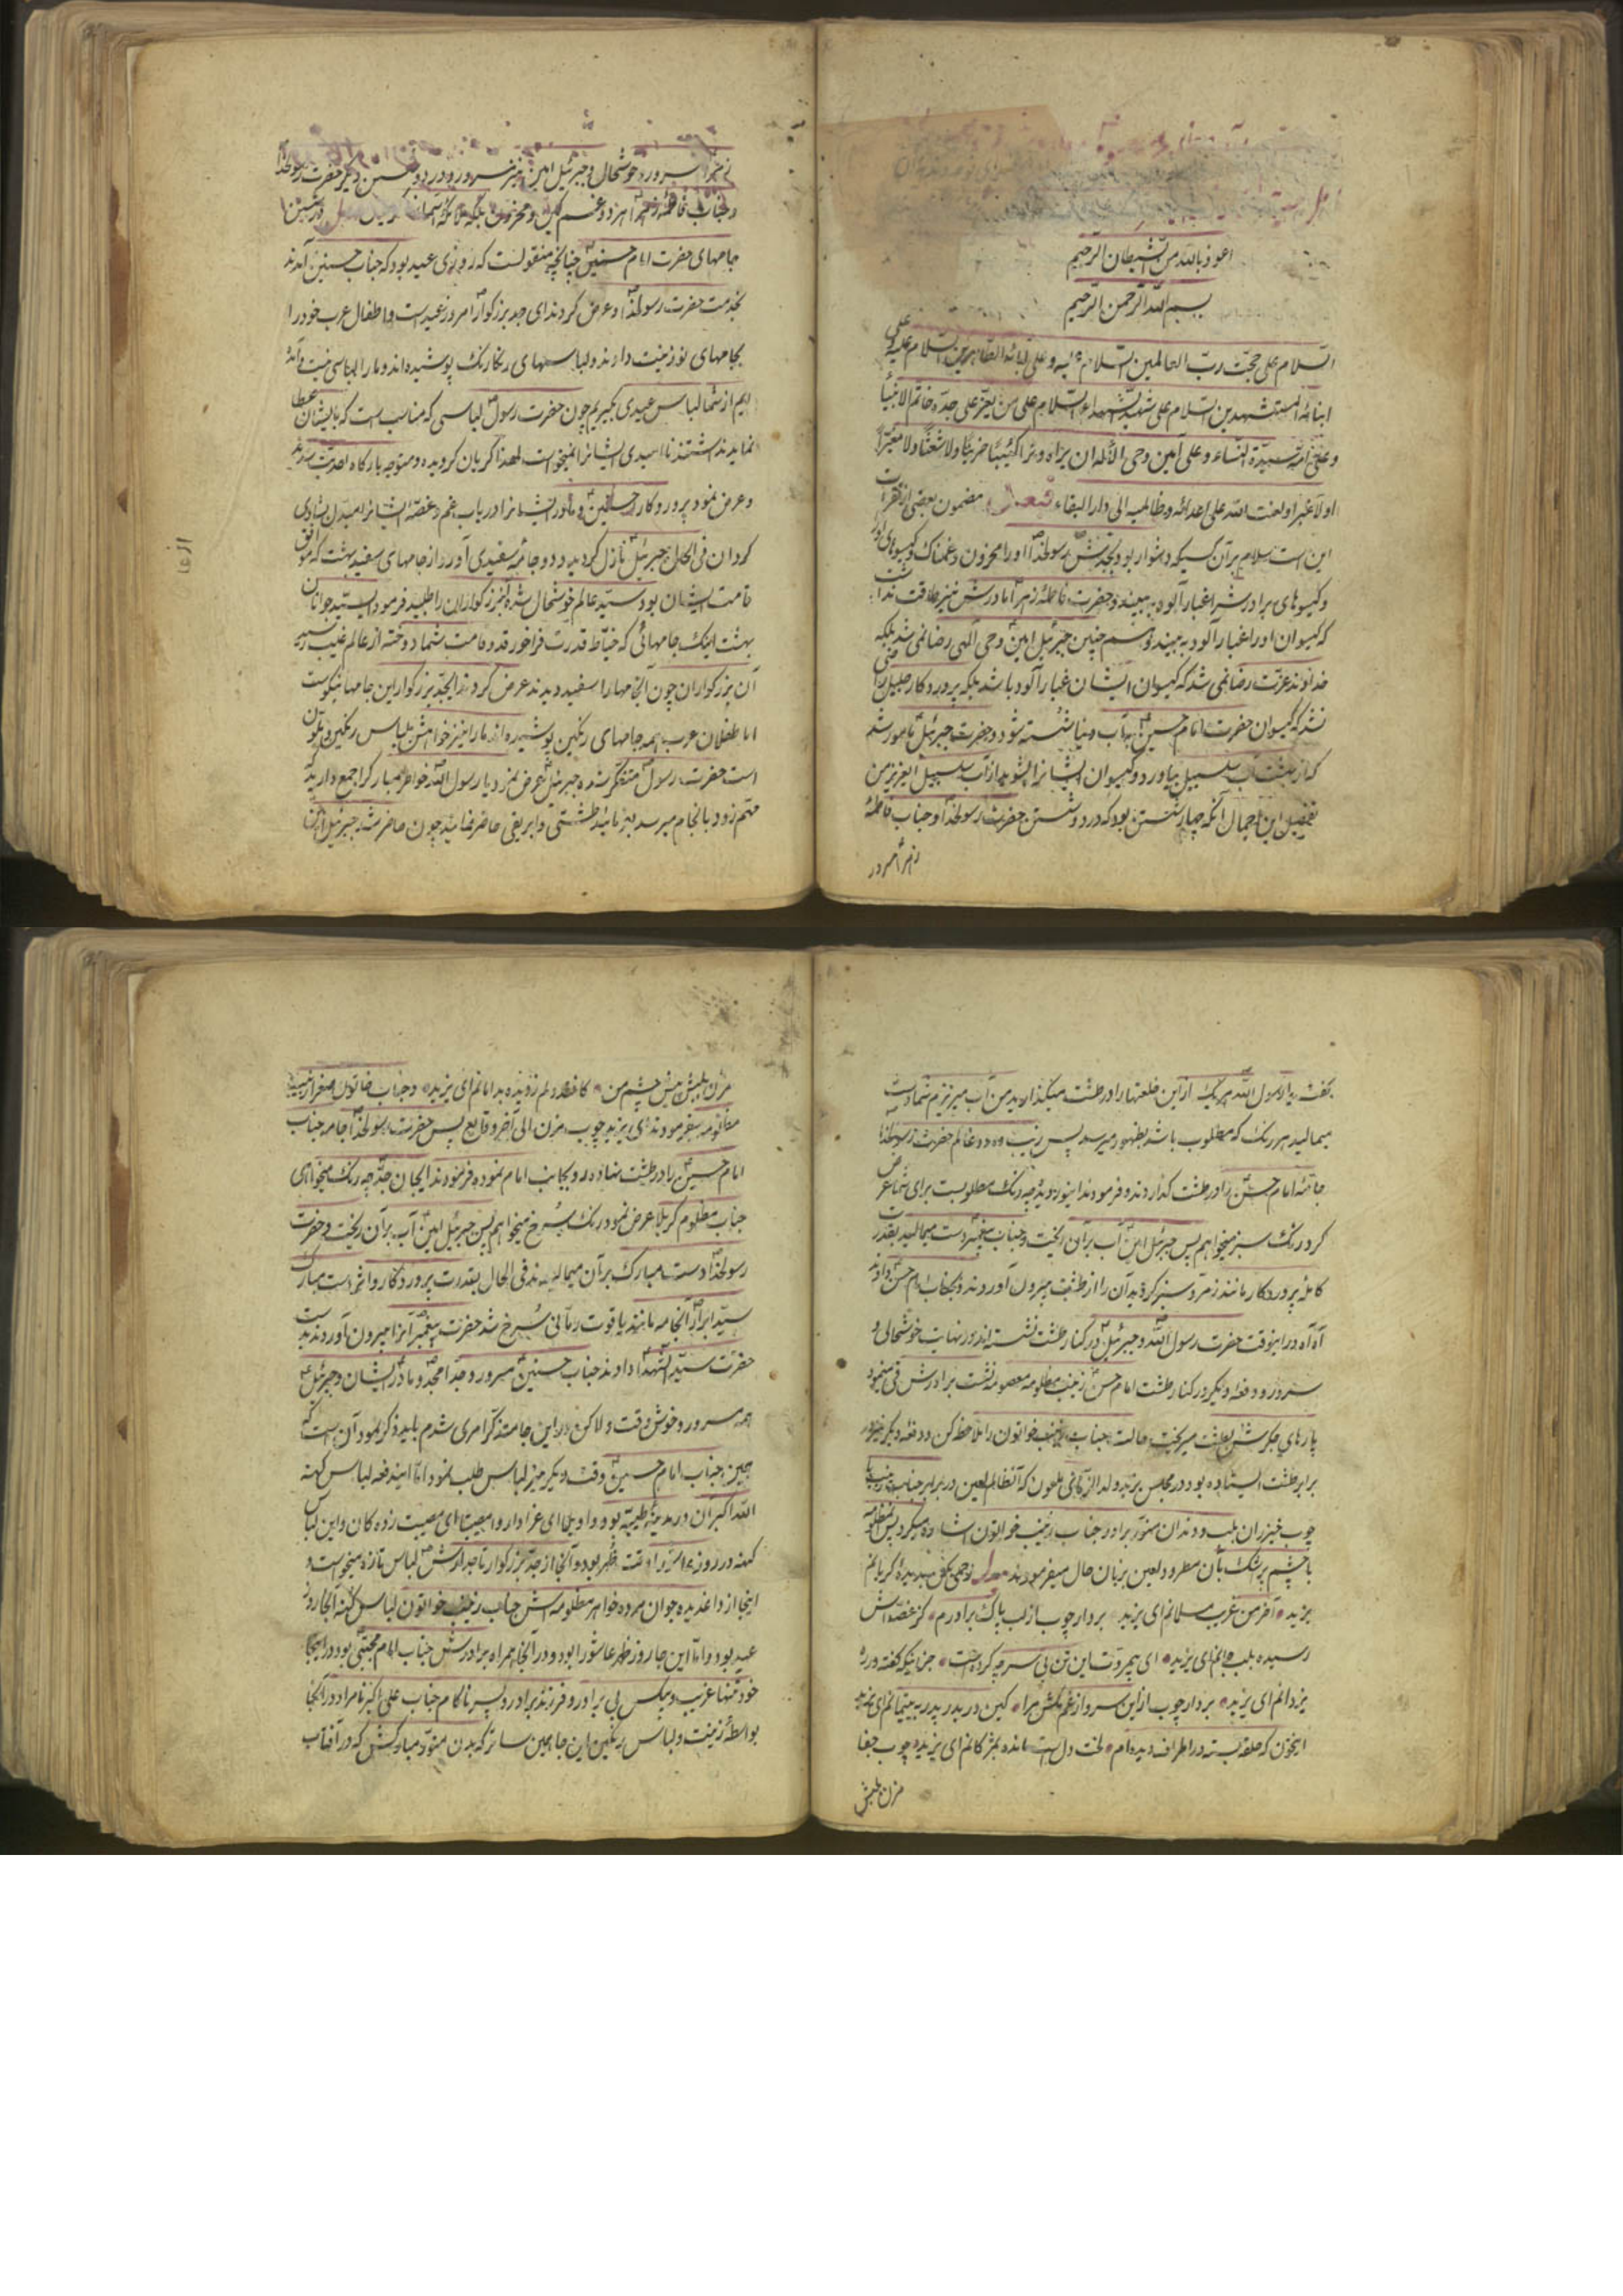 اعوذ بالله من الشیطان الرجیم
بسم الله الرحمن الرحیم
السلام علی حجت رب العالمین السلام علیه و علی آبائه الطاهرین السلام علیه و علی
ابنائه المستشهدین السلام علی شهید الشهداء السلام علی من یعز علی جده خاتم الانبیا
و علی امه سیدة النساء و علی امین وحی الاله ان یراه و ترا کئیبا حزینا ولا شعثا ولا مغبرا
اولا غبرا و لعنت الله علی اعدائه و ظالمیه الی دار البقاء مضمون بعضی از فقرات
این است سلام بر آن کسیکه دشوار بود بجدش رسولخدا او را محزون و غمناک و گیسوهای او
و گیسوهای برادرش را غبار آلوده ببیند و حضرت فاطمه زهرا مادرش نیز طاقت نداشت
که گیسوان او را غبار آلود ببیند و همچنین جبرئیل امین وحی الهی رضا نمی شد بلکه
خداوند عزت رضا نمی شد که گیسوان ایشان غبار آلود باشد بلکه پروردگار جلیل راضی
نشد که گیسوان حضرت امام حسین به آب دنیا شسته شود و حضرت جبرئیل مامور شد
که از بهشت آب سلسبیل بیاورد و گیسوان ایشانرا بشوید از آب سلسبیل ایعزیز من
تفصیل این اجمال آنکه چهار شستن بود که در دو شستن حضرت رسولخدا و جناب فاطمه
زهرا سرور
سرور و خوشحال و جبرئیل امین نیز سرور و در دو شستن دیگر حضرت رسولخدا
و جناب فاطمه زهرا هر دو غمگین و محزون بلکه ملائکه آسمان
جامهای حضرت امام حسنین چنانچه منقولست که روزی عید بود که جناب حسنین آمدند
بخدمت حضرت رسولخدا و عرض کردند ای جد بزرگوار امروز عید است و اطفال عرب خود را
بجامهای نو زینت دارند و لباسهای رنگارنگ پوشیده اند و ما را لباسی نیست و آمده
ایم از شما لباس عیدی بگیریم چون حضرت رسول لباسی که مناسب است که بایشان عطا
نمایند نداشتند ناامیدی ایشانرا نمیخواست لهذا گریان گردیده و متوجه بارگاه احدیت شدند
و عرض نمود پروردگارا حسنین و مادر ایشانرا دریاب غم و غصه ایشانرا مبدل بشادی
گردان فی الحال جبرئیل نازل گردید و دو جامه سفیدی آورد از جامهای سفید بهشت که موافق
قامت ایشان بود سید عالم خوشحال شده آن بزرگواران را طلبید فرمود ای سید جوانان
بهشت اینک جامهائی که خیاط قدرت فراخور قد و قامت شما دوخته از عالم غیب رسید
آن بزرگواران چون آنجامها را سفید دیدند عرض کردند ایجد بزرگوار این جامها نیکوست
اما طفلان عرب همه جامهای رنگین پوشیده اند ما را نیز خواهش لباس رنگین و ملون
است حضرت رسول متفکر شده جبرئیل عرض نمود یا رسول الله خاطر مبارک را جمع دارید که
مهم زود بانجام میرسد بفرمائید طشتی و ابریقی حاضر نمایند چون حاضر شد جبرئیل امین
گفت یا رسول الله هر یک از این خلعتها را در طشت میگذارید من آب میریزم شما دست
میمالید هر رنگ که مطلوب باشد بظهور میرسد پس زینت ده دو عالم حضرت رسولخدا
جامه امام حسن را در طشت گذاردند و فرمودند اینور دیده چه رنگ مطلوبست برای شما عرض
کرد رنگ سبز میخواهم پس جبرئیل امین آب بر آن ریخت و جناب پیغمبر دست میمالید بقدرت
کامله پروردگار مانند زمرد سبز گردید آن را از طشت بیرون آوردند و بجناب امام حسن دادند
آه آه در اینوقت حضرت رسول الله و جبرئیل در کنار طشت نشسته اند در نهایت خوشحالی و
سرور و دفعه دیگر در کنار طشت امام حسن زینب مظلومه معصومه نشست برادرش قی مینمود
پارهای جگرش بطشت میریخت حالت جناب زینب خواتون را ملاحظه کن و دفعه دیگر نیز در
برابر طشت ایستاده بود در مجلس یزید ولد الزنای ملعون که آنظالم لعین در برابر جناب زینب با
چوب خیزران بلب و دندان منور برادر جناب زینب خواتون اشاره میکرد پس آنمظلومه
با چشم پر اشک بآن مطرود لعین بزبان حال میفرمودند رحمی بکن بدیده گریانم
یزید آخر من غریب مسلمانم ای یزید بردار چوب از لب پاک برادرم کز غصه اش
رسیده بلب جانم ای یزید ای بیمروت این تن بی سر چه کرده است جز اینکه گفته در ره
یزدانم ای یزید بردار چوب از این سر و از غم مکش مرا کین در بدر پدر به یتیمانم ای یزید
ایخون که حلقه بسته در اطراف دیده ام لخت دل است مانده بمژگانم ای یزید چوب جفا
مزن بلبش
مزن بلبش پیش چشم من کاخر دلم ز دیده بدامانم ای یزید و جناب خاتون صغرا زینب
مظلومه میفرمودند ای یزید چوب مزن الی آخر وقایع پس حضرت رسولخدا جامه جناب
امام حسین را در طشت نهاده رو بجانب امام نموده فرمودند ایجان جد چه رنگ میخواهی
جناب مظلوم کربلا عرض نمود رنگ سرخ میخواهم پس جبرئیل امین آب بر آن ریخت و حضرت
رسولخدا دست مبارک بر آن میمالیدند فی الحال بقدرت پروردگار و از اثر دست مبارک
سید ابرار آنجامه مانند یاقوت رمانی سرخ شد حضرت پیغمبر آنرا بیرون آوردند بدست
حضرت سید الشهدا دادند جناب حسنین مسرور و جد امجد و مادر ایشان و جبرئیل
همه مسرور و خوش وقت و لاکن در این جا متذکر امری شدم باید ذکر نمود آن است که
همین جناب امام حسین وقت دیگر نیز لباس طلب نمود اما ایندفعه لباس کهنه
الله اکبر آن در مدینه طیبه بود و واویلا ای عزادار و امصیبتا ای مصیبت زده کان و این لباس
کهنه در روز عاشورا وقت ظهر بود و آنجا از جد بزرگوار تاجدارش لباس تازه میخواست و
اینجا از داغدیده جوان مرده خواهر مظلومه اش جناب زینب خواتون لباس کهنه آنجا روز
عید بود و اما این جا روز ظهر عاشورا بود و در آنجا همراه برادرش جناب امام مجتبی بود در اینجا
خود تنها غریب و بیکس بی برادر و فرزند برادر و پسر ناکام جناب علی اکبر نامراد در آنجا
بواسطه زینت و لباس رنگین این جا بجهت ساتر که بدن منور مبارکش که در آفتاب